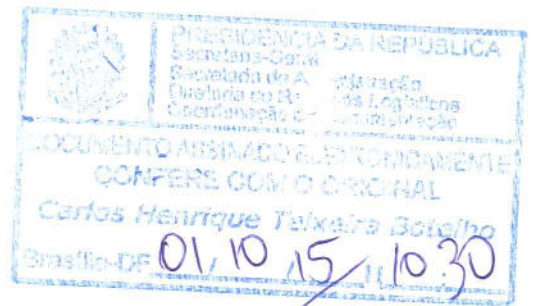 PRESIDÊNCIA DA REPÚBLICA
Secretaria-Geral
Secretaria de A
Diretoria de R Logísticos
Coordenação
DOCUMENTO ASSINADO ELETRONICAMENTE
CONFERE COM O ORIGINAL
Carlos Henrique Teixeira Botelho
Brasília-DF 01/10/15 10:30